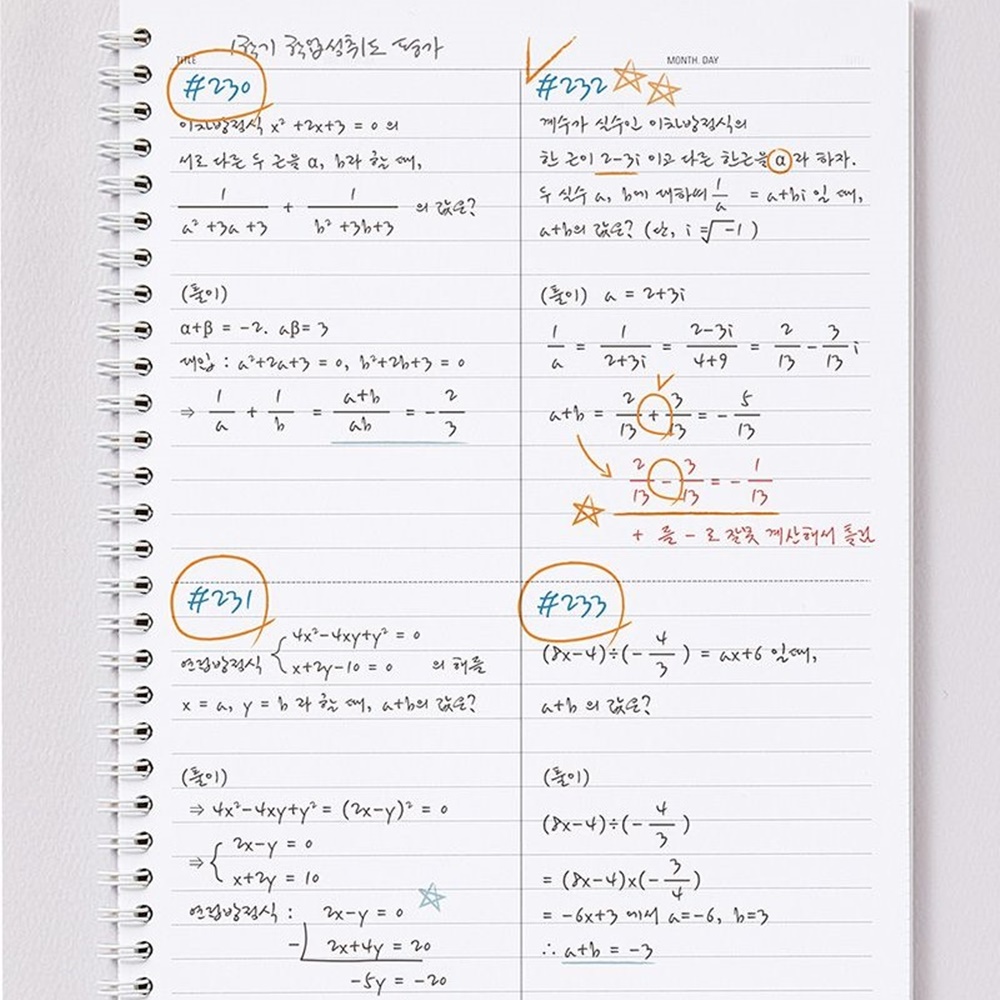 1학기 학업성취도 평가
TITLE
MONTH. DAY
#230
이차방정식 x² +2x+3 = 0 의
서로 다른 두 근을 α, b라 할 때,
1/(a² +3a +3) + 1/(b² +3b+3) 의 값은?
(풀이)
α+β = -2. aβ= 3
대입 : a²+2a+3 = 0, b²+2b+3 = 0
⇒ 1/a + 1/b = (a+b)/(ab) = - 2/3
#232
계수가 실수인 이차방정식의
한 근이 2-3i 이고 다른 한근을 α 라 하자.
두 실수 a, b에 대하여 1/a = a+bi 일 때,
a+b의 값은? (단, i = √-1 )
(풀이) a = 2+3i
1/a = 1/(2+3i) = (2-3i)/(4+9) = 2/13 - 3/13 i
a+b = 2/13 + 3/13 = - 5/13
2/13 - 3/13 = - 1/13
+ 를 - 로 잘못 계산해서 틀림
#231
연립방정식 { 4x²-4xy+y² = 0
x+2y-10 = 0 의 해를
x = a, y = b 라 할 때, a+b의 값은?
(풀이)
⇒ 4x²-4xy+y² = (2x-y)² = 0
⇒ { 2x-y = 0
x+2y = 10
연립방정식 : 2x-y = 0
- 2x+4y = 20
-5y = -20
#233
(8x-4)÷(- 4/3 ) = ax+6 일때,
a+b 의 값은?
(풀이)
(8x-4)÷(- 4/3 )
= (8x-4)x(- 3/4 )
= -6x+3 에서 a=-6, b=3
∴ a+b = -3